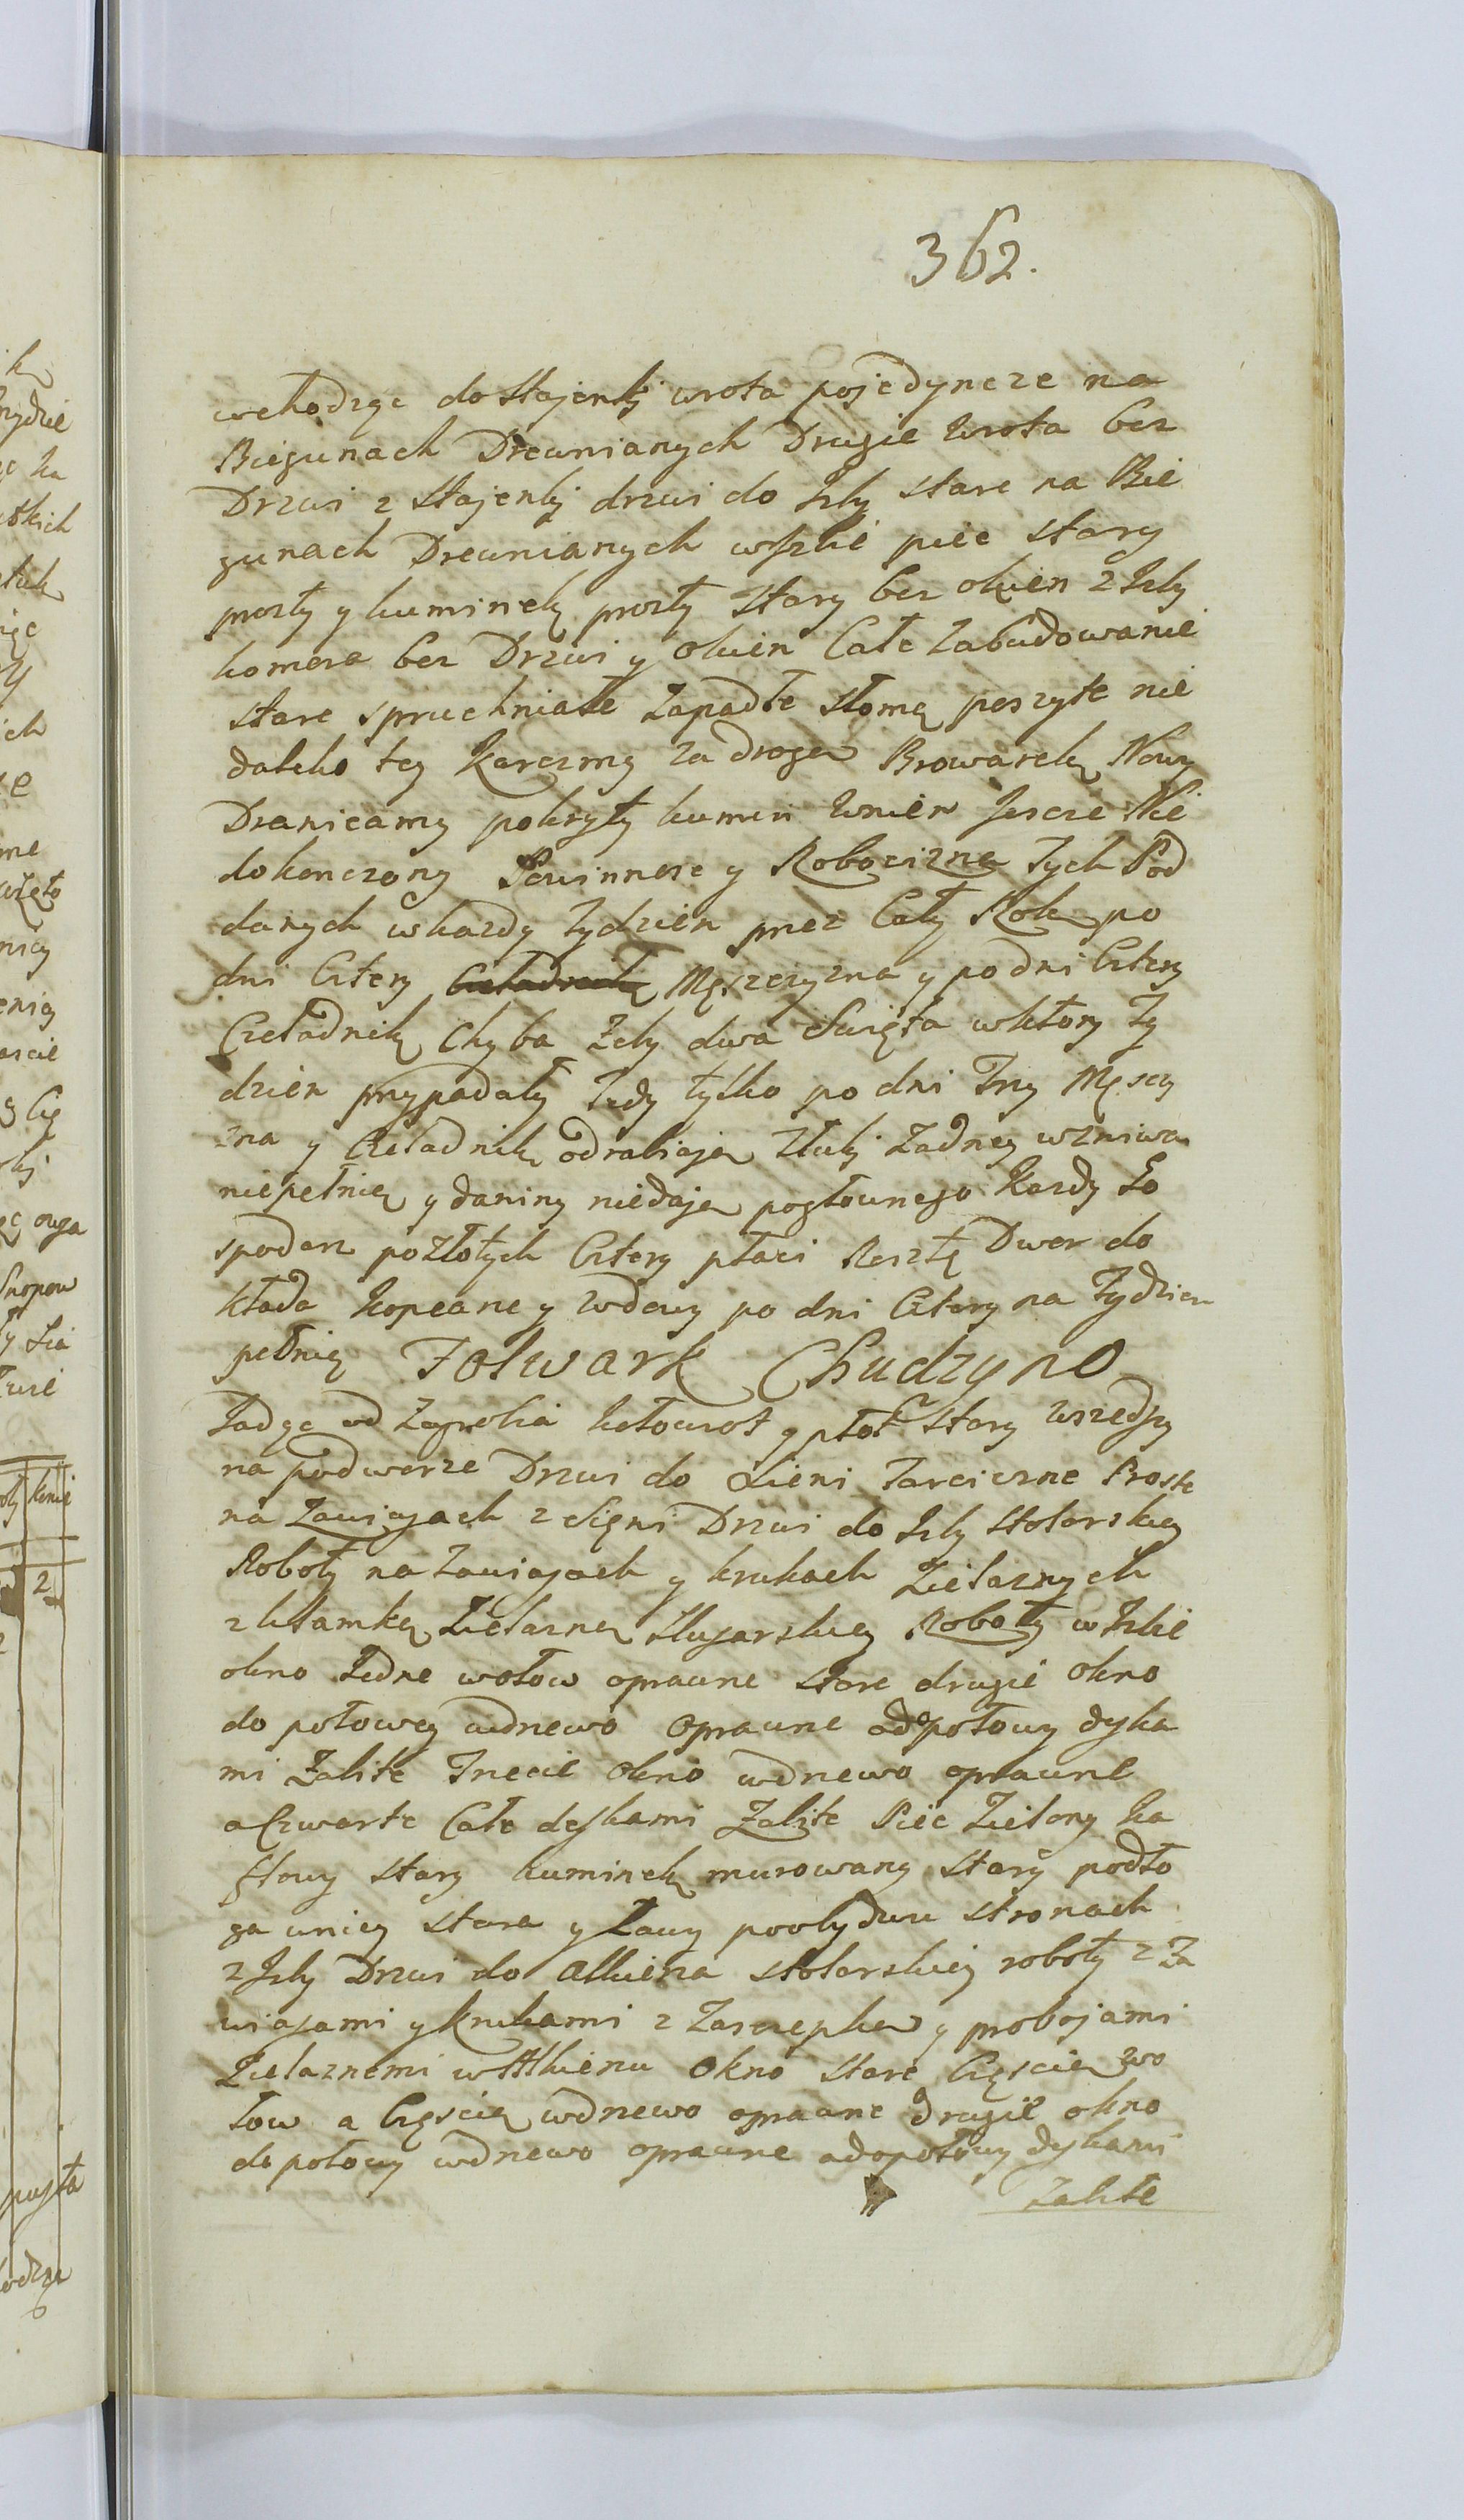 362.
wchodząc do Stajenki wrota pojedyncze na
Biegunach Drewnianych Drugie Wrota bez
Drzwi z Stajenki drzwi do Izby stare na Bie
gunach Drewnianych w Izbie piec stary
prosty y kuminek prosty Stary bez okien z Izby
komora bez Drzwi y okien Całe Zabudowanie
stare spruchniałe Zapadłe słomą poszyte nie
daleko tey Karczmy za drogą Browarek Nowy
Dranicamy pokryty kumin wniem Jescze Nie
dokonczony Powinnosc y Robocizna Tych Pod
danych wkazdy Tydzien przez Cały Rok po
dni Cztery Męszczyzna y po dni Cztery
Czeladnik Chyba Zeby dwa Swięta wktory Ty
dzien przypadały Tedy tylko po dni Trzy Męsczy
zna y Czeladnik odrabiaja Tłuki Zadney wzniwa
niepełnią y daniny niedają pogłownego Kazdy Go
spodarz pozłotych Cztery płaci Resztę Dwor do
kłada Kopcane y Wdowy po dni Cztery na Tydzien
pełnią Folwark Chudzyno
Jadąc od Zagrobia kołowrot y płot Stary wszedszy
na podworze Drzwi do Sieni Tarciczne Proste
na Zawiasach z Sięni Drzwi do Izby Stolarskiey
Roboty na Zawiasach y krukach Zielaznych
z klamką Zielazną Slusarskiey Roboty w Izbie
okno Jedne wołow oprawne stare drugie okno
do połowey wdrewo oprawne adopołowy dyka
mi Zabite Trzecie Okno wdrewo oprawne
a Czwarte Całe deskami Zabite Piec Zielony ka
flowy stary kuminek murowany stary podło
ga wniey stara y Ławy poobydwu stronach
z Izby Drzwi do Alkierza stolarskiey roboty z Za
wiasami y krukami z Zasczepką y probojami
Zielaznemi w Alkierzu Okno Stare Częscią wo
łow a Częscią wdrewo oprawne drugie okno
do połowy wdrewo oprawne adopołowy dykami
Zabite